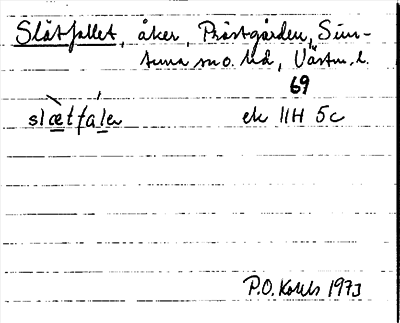 Slåtfallet, åker, Prästgården, Sim-
tuna sn o. hd, Västm. l.
69
slætfaler ek 11H 5c
P.O. Kohls 1973